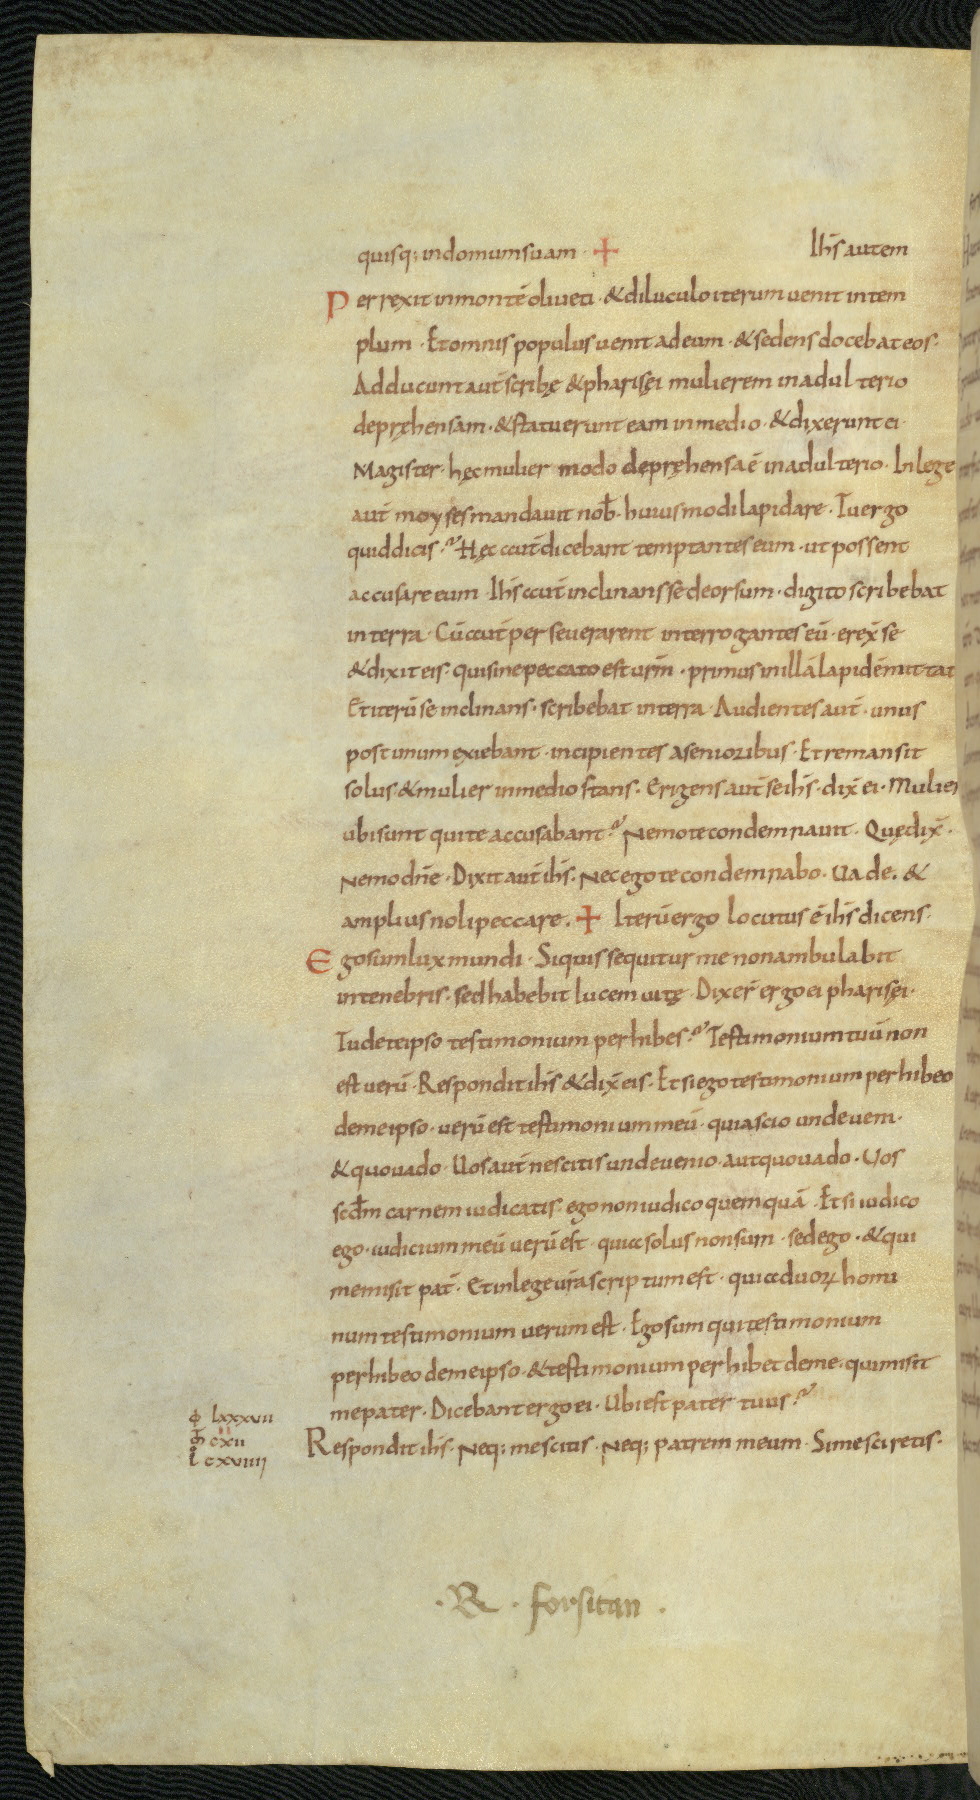 quisq; in domum suam · + Ihs autem
Perrexit in monte᷃ oliveti · & diluculo iterum uenit in tem
plum · Et omnis populus uenit ad eum · & sedens docebat eos ·
Adducunt aut̄ scribę & pharisęi mulierem in adulterio
depręhensam · & statuerunt eam in medio · & dixerunt ei ·
Magister · hęc mulier modo depręhensa ē in adulterio · In lege
aut̄ moyses mandauit nob̄ · huiusmodi lapidare · Tu ergo
quid dicis? Hęc aut̄ dicebant temptantes eum · ut possent
accusare eum · Ihs aut̄ inclinans se deorsum · digito scribebat
in terra · Cū aut̄ perseuerarent interrogantes eū · erex̄ se
& dixit eis · qui sine peccato est urm̄ · primus in illā lapidē mittat
Et iterū se inclinans · scribebat in terra · Audientes aut̄ · unus
post unum exiebant · incipientes a senioribus · Et remansit
solus & mulier in medio stans · Erigens aut̄ se ihs · dix̄ ei · Mulier
ubi sunt qui te accusabant? Nemo te condemnauit · Quę dix̄ ·
Nemo dn̄e · Dixit aut̄ ihs · Nec ego te condemnabo · Uade · &
amplius noli peccare · + Iterū ergo locutus ē ihs dicens ·
Ego sum lux mundi · Si quis sequitur me non ambulabit
in tenebris · sed habebit lucem uitę · Dixer̄ ergo ei pharisęi ·
Tu de te ipso testimonium perhibes? Testimonium tuū non
est verū · Respondit ihs & dix̄ eis · Et si ego testimonium perhibeo
de me ipso · verū est testimonium meū · quia scio unde veni ·
& quo uado · Uos aut̄ nescitis unde uenio · aut quo uado · Uos
scd̄m carnem iudicatis · ego non iudico quemquā · Et si iudico
ego · iudicium meū verū est · quia solus non sum · sed ego · & qui
me misit pat̄ · Et in lege ur̄a scriptum est · quia duoꝝ homi
num testimonium verum est · Ego sum qui testimonium
perhibeo de me ipso · & testimonium perhibet de me · qui misit
me pater · Dicebant ergo ei · Ubi est pater tuus?
ϕ lxxxvii
m̄ cxii
l cxviiii
Respondit ihs · Neq; me scitis · Neq; patrem meum · Si me sciretis ·
· R · forsitan ·